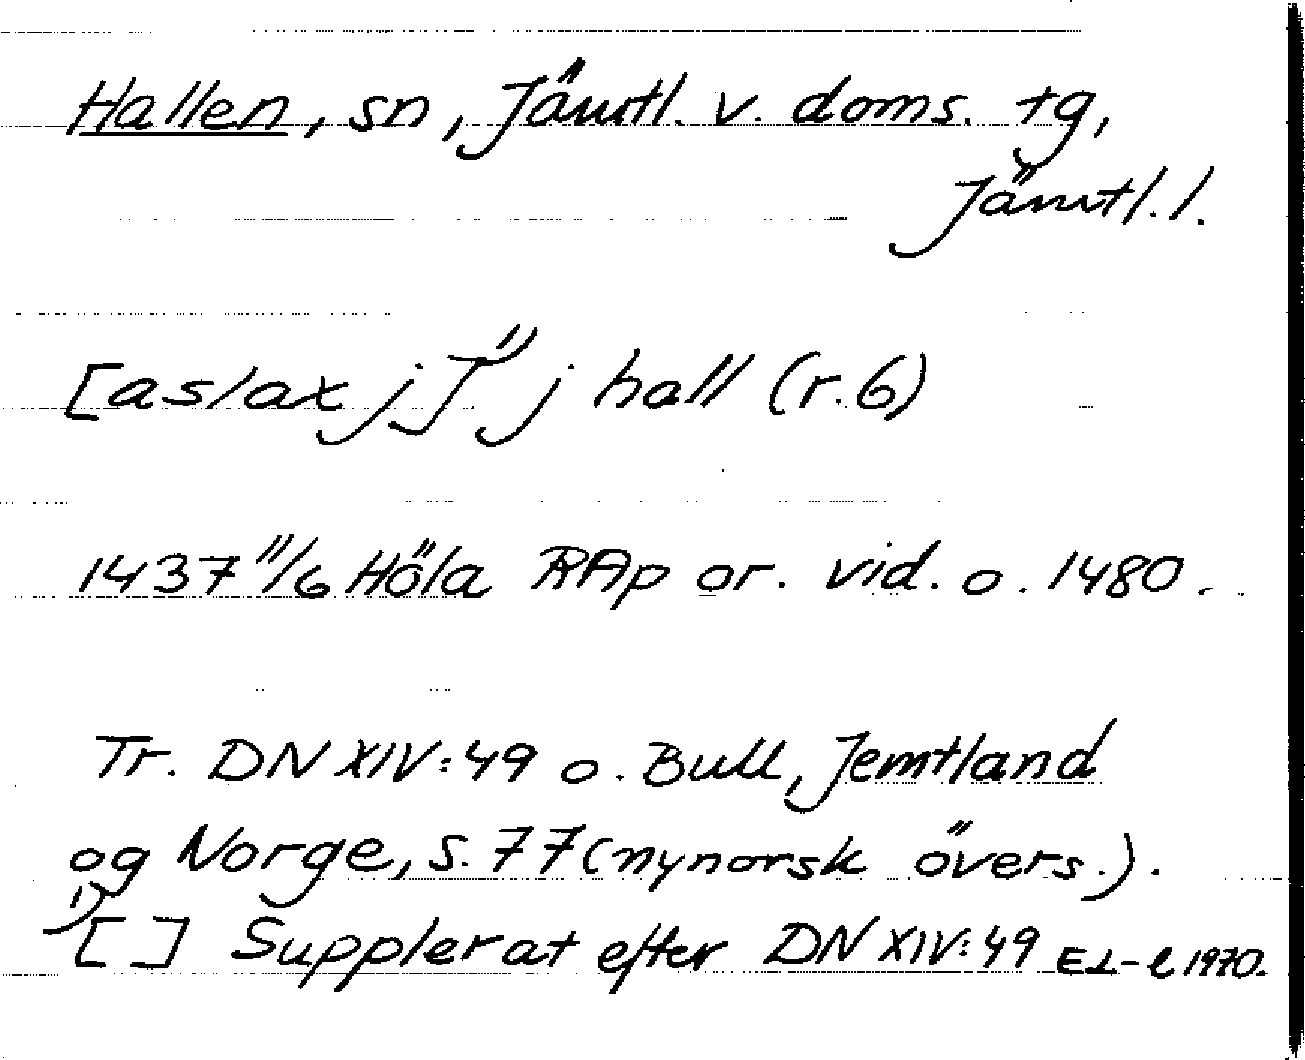 Hallen, sn, Jämtl. v. doms. tg,
Jämtl. l.
[aslax j]¹⁾ j hall (r. 6)
1437 11/6 Höla RAp or. vid. o. 1480.
Tr. DN XIV:49 o. Bull, Jemtland
og Norge, s. 77 (nynorsk övers.).
¹⁾[ ] Supplerat efter DN XIV:49 EL-l 1970.